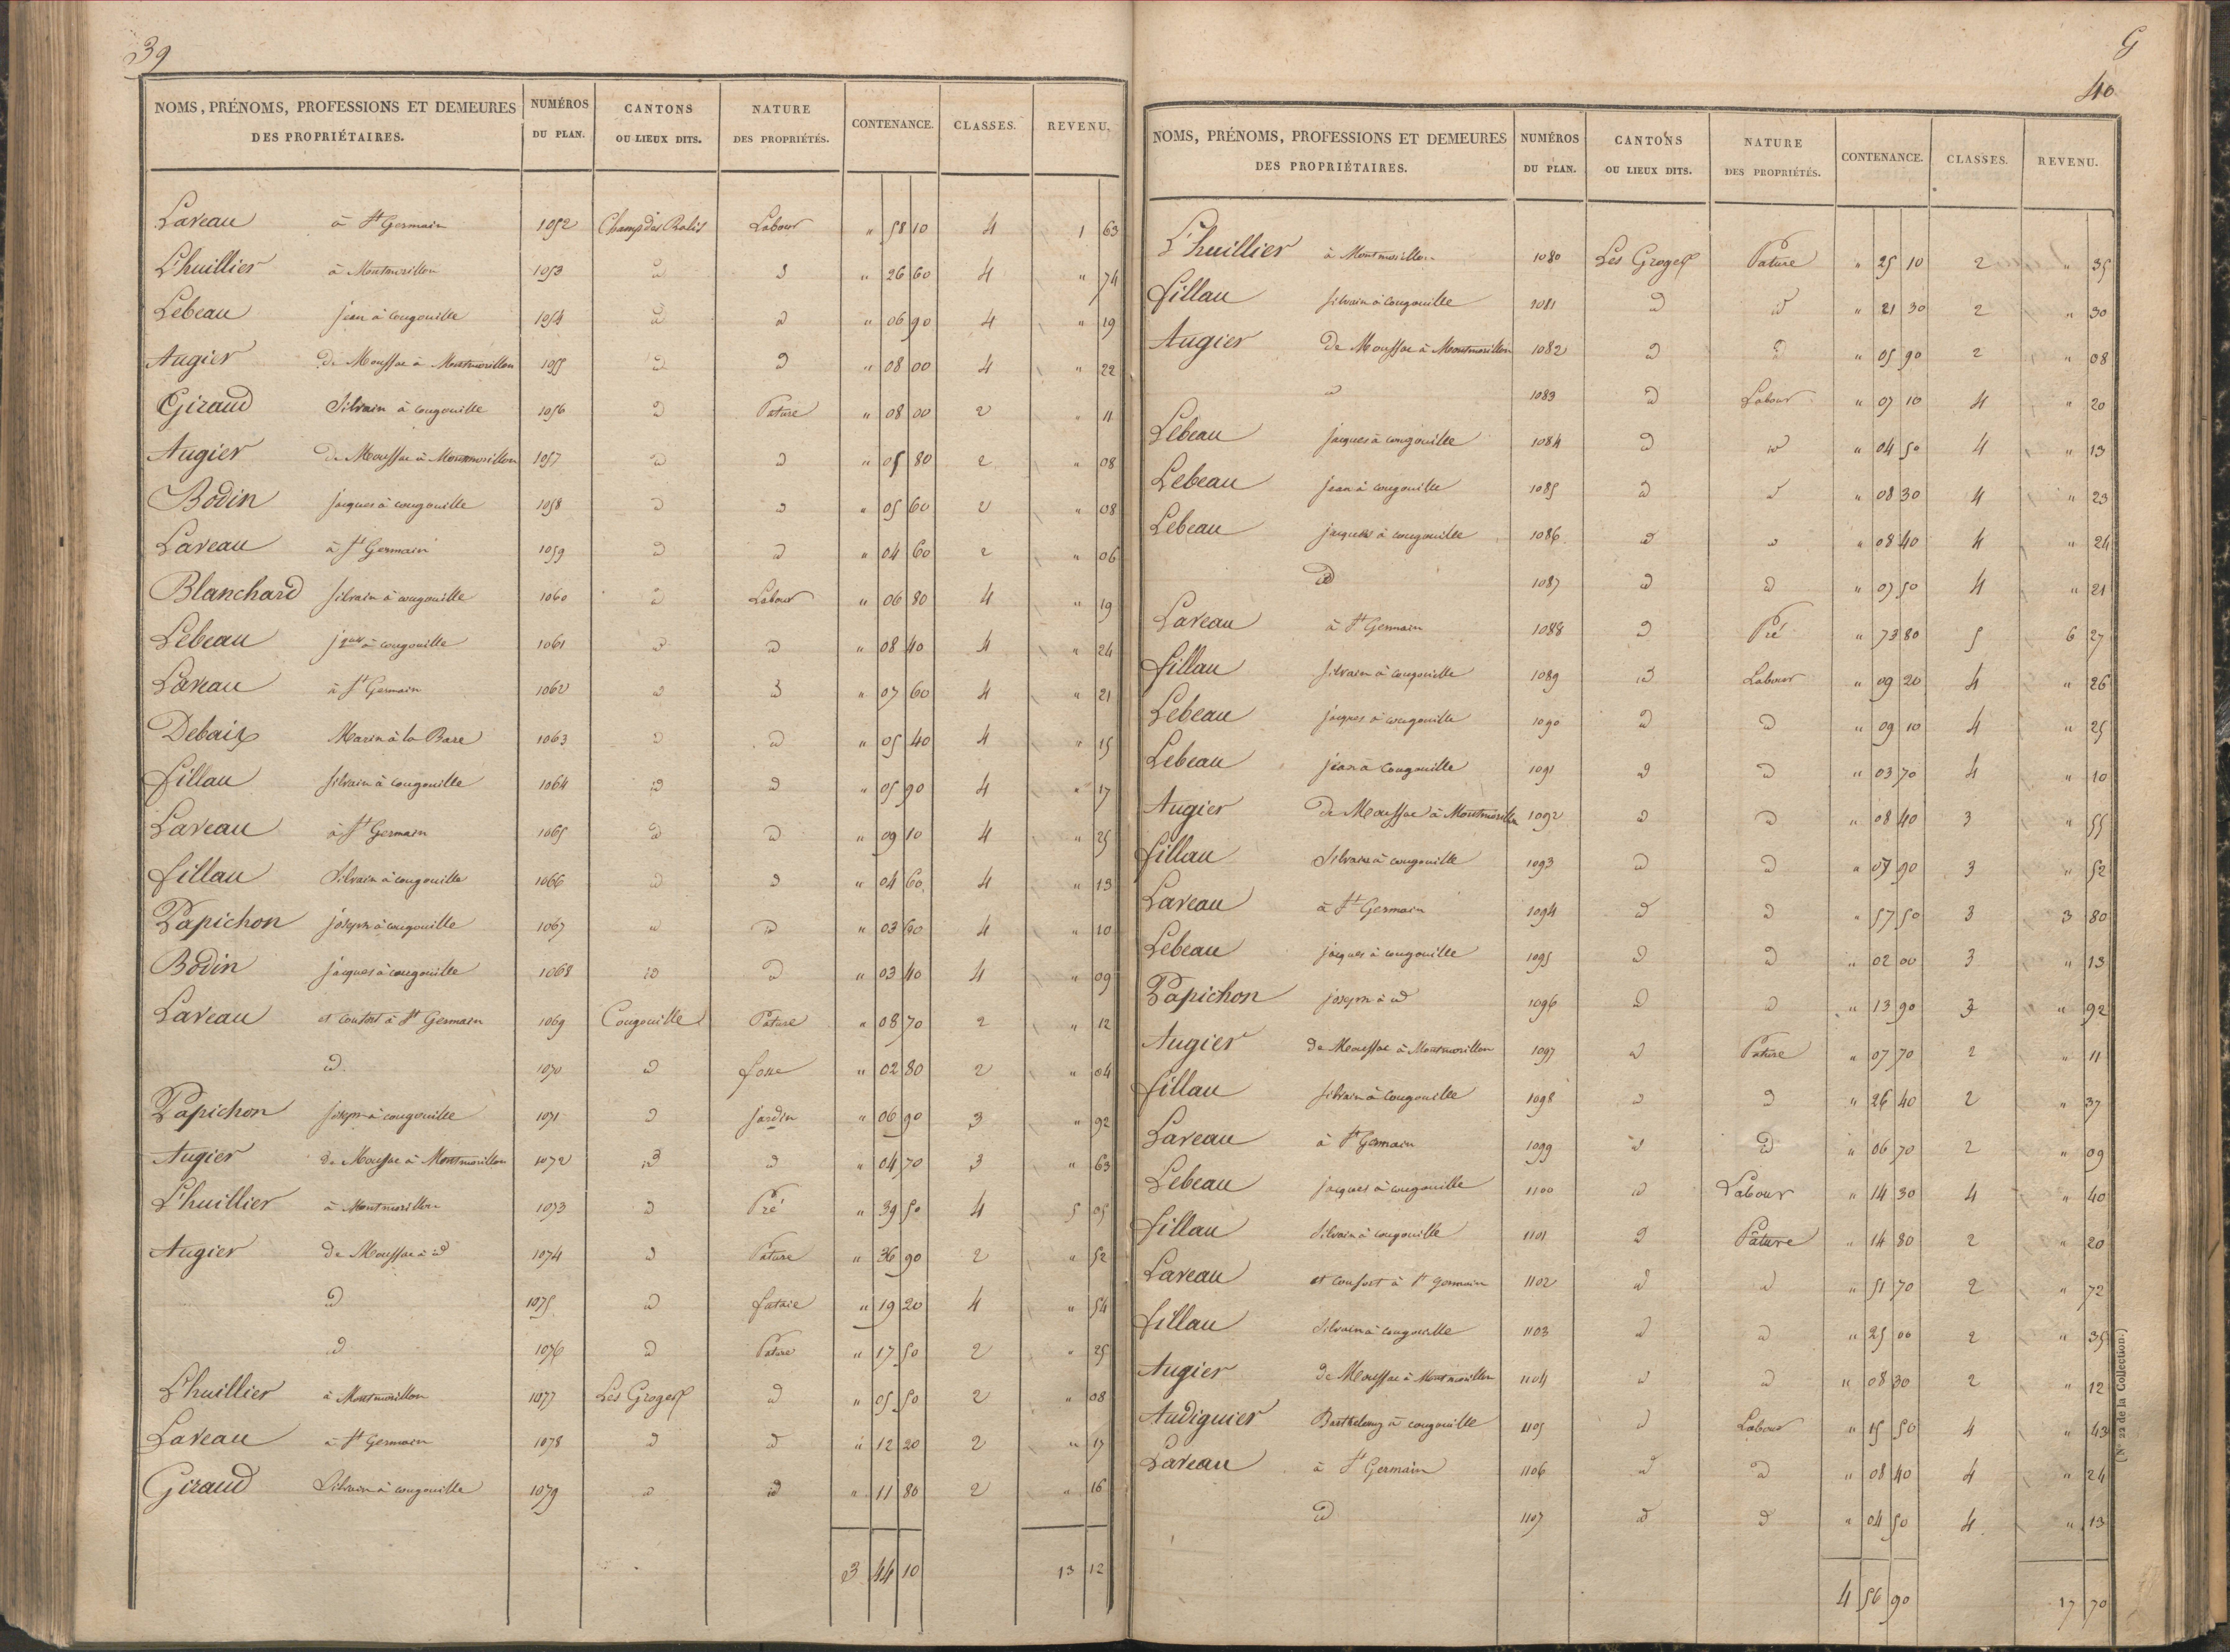 39
NOMS, PRÉNOMS, PROFESSIONS ET DEMEURES DES PROPRIÉTAIRES. NUMÉROS DU PLAN. CANTONS OU LIEUX DITS. NATURE DES PROPRIÉTÉS. CONTENANCE. CLASSES. REVENU.
Laveau à St Germain 1052 Champ des Labour " 58 10 4 1 63
L'huillier à Montmorillon 1053 id id " 26 60 4 " 74
Lebeau jean à cougouille 1054 id id " 06 90 4 " 19
Augier de Moussac à Montmorillon 1055 id id " 08 00 4 " 22
Giraud Silvain à cougouille 1056 id Pature " 08 00 2 " 11
Augier de Moussac à Montmorillon 1057 id id " 05 80 2 " 08
Bodin jacques à cougouille 1058 id id " 05 60 2 " 08
Laveau à St Germain 1059 id id " 04 60 2 " 06
Blanchard silvain à cougouille 1060 id Labour " 06 80 4 " 19
Lebeau jques à cougouille 1061 id id " 08 40 4 " 24
Laveau à St Germain 1062 id id " 07 60 4 " 21
Debaix Marin à la Bare 1063 id id " 05 40 4 " 15
fillau silvain à cougouille 1064 id id " 05 90 4 " 17
Laveau à St Germain 1065 id id " 09 10 4 " 25
fillau Silvain à cougouille 1066 id id " 04 60 4 " 13
Papichon joseph à cougouille 1067 id id " 03 60 4 " 10
Bodin jacques à cougouille 1068 id id " 03 40 4 " 09
Laveau et consort à St Germain 1069 Cougouille Pature " 08 70 2 " 12
id 1070 id fosse " 02 80 2 " 04
Papichon joseph à cougouille 1071 id jardin " 06 90 3 " 92
Augier de Moussac à Montmorillon 1072 id id " 04 70 3 " 63
L'huillier à Montmorillon 1073 id Pré " 39 50 4 5 05
Augier de Moussac à id 1074 id Pature " 36 90 2 " 52
id 1075 id futaie " 19 20 4 " 54
id 1076 id Pature " 17 50 2 " 25
L'huillier à Montmorillon 1077 Les Groges id " 05 50 2 " 08
Laveau à St Germain 1078 id id " 12 20 2 " 17
Giraud Silvain à cougouille 1079 id id " 11 80 2 " 16
3 44 10 13 12
G
40
NOMS, PRÉNOMS, PROFESSIONS ET DEMEURES DES PROPRIÉTAIRES. NUMÉROS DU PLAN. CANTONS OU LIEUX DITS. NATURE DES PROPRIÉTÉS. CONTENANCE. CLASSES. REVENU.
L'huillier à Montmorillon 1080 Les Groges Pature " 25 10 2 " 35
fillau silvain à cougouille 1081 id id " 21 30 2 " 30
Augier de Moussac à Montmorillon 1082 id id " 05 90 2 " 08
id 1083 id Labour " 07 10 4 " 20
Lebeau jacques à cougouille 1084 id id " 04 50 4 " 13
Lebeau jean à cougouille 1085 id id " 08 30 4 " 23
Lebeau jacques à cougouille 1086 id id " 08 40 4 " 24
id 1087 id id " 07 50 4 " 21
Laveau à St Germain 1088 id Pré " 73 80 5 6 27
fillau silvain à cougouille 1089 id Labour " 09 20 4 " 26
Lebeau jacques à cougouille 1090 id id " 09 10 4 " 25
Lebeau jean à cougouille 1091 id id " 03 70 4 " 10
Augier de Moussac à Montmorillon 1092 id id " 08 40 3 " 55
fillau Silvain à cougouille 1093 id id " 07 90 3 " 52
Laveau à St Germain 1094 id id " 57 50 3 3 80
Lebeau jacques à cougouille 1095 id id " 02 00 3 " 13
Papichon joseph à id 1096 id id " 13 90 3 " 92
Augier de Moussac à Montmorillon 1097 id Pature " 07 70 2 " 11
fillau silvain à cougouille 1098 id id " 26 40 2 " 37
Laveau à St Germain 1099 id id " 06 70 2 " 09
Lebeau jacques à cougouille 1100 id Labour " 14 30 4 " 40
fillau Silvain à cougouille 1101 id Pature " 14 80 2 " 20
Laveau et consort à St germain 1102 id id " 51 70 2 " 72
fillau Silvain à cougouille 1103 id id " 25 00 2 " 35
Augier de Moussac à Montmorillon 1104 id id " 08 30 2 " 12
Audiguier Barthelemy à cougouille 1105 id Labour " 15 50 4 " 43
Laveau à St Germain 1106 id id " 08 40 4 " 24
id 1107 id id " 04 50 4 " 13
4 56 90 17 70
(N° 22 de la Collection.)